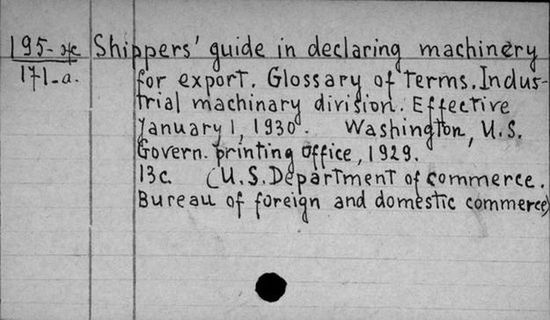 195-
171-a.
Shippers' guide in declaring machinery
for export. Glossary of terms. Indus-
trial machinary division. Effective
January 1, 1930. Washington, U.S.
Govern. printing office, 1929.
13c. (U.S. Department of commerce.
Bureau of foreign and domestic commerce)